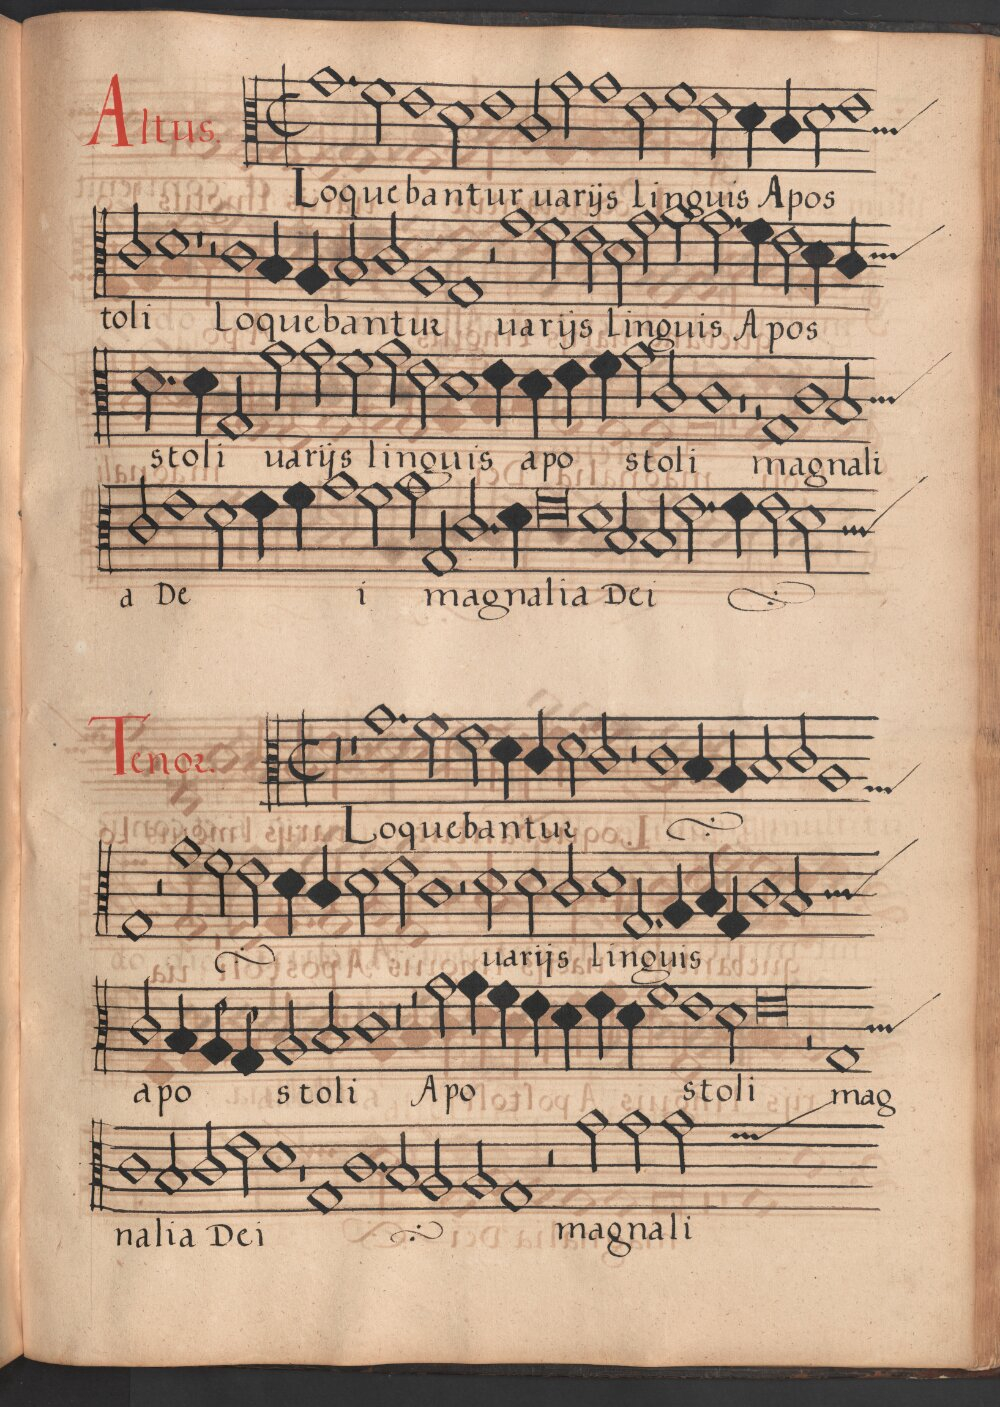 Altus.
Loquebantur uarijs linguis Apos
toli Loquebantur uarijs linguis Apos
stoli uarijs linguis apo stoli magnali
a Dei magnalia Dei
Tenor.
Loquebantur
uarijs linguis
apo stoli Apo stoli mag
nalia Dei magnali